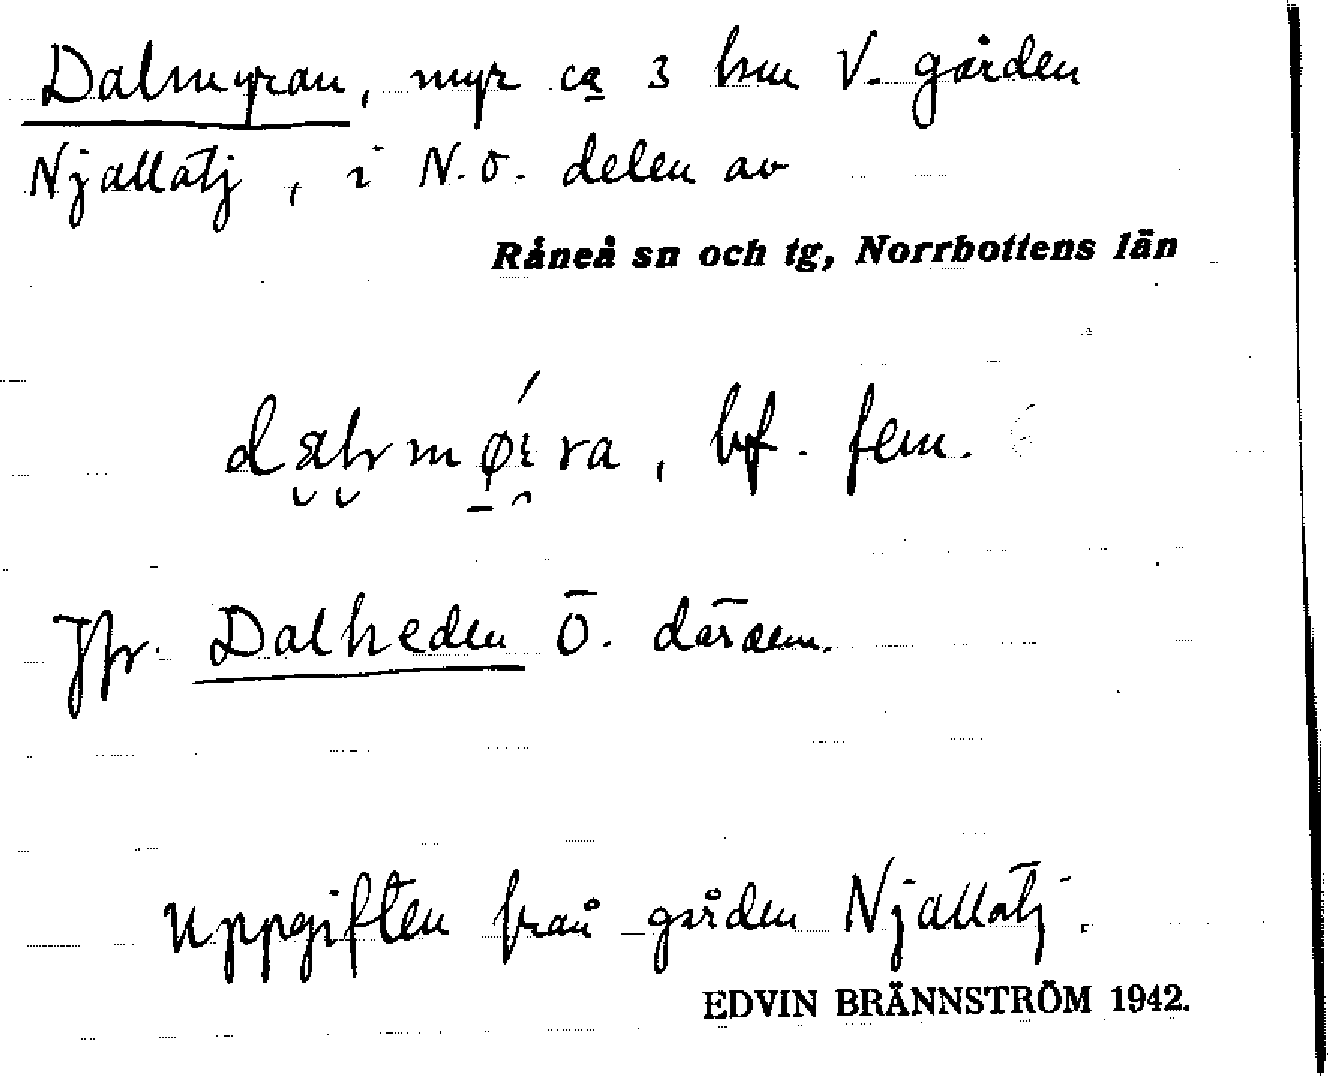 Dalmyran, myr ca 3 km V. gården
Njallatj, i N.Ö. delen av
Råneå sn och tg, Norrbottens län
bf. fem.
Jfr. Dalheden Ö. därom.
Uppgiften från gården Njallatj.
EDVIN BRÄNNSTRÖM 1942.